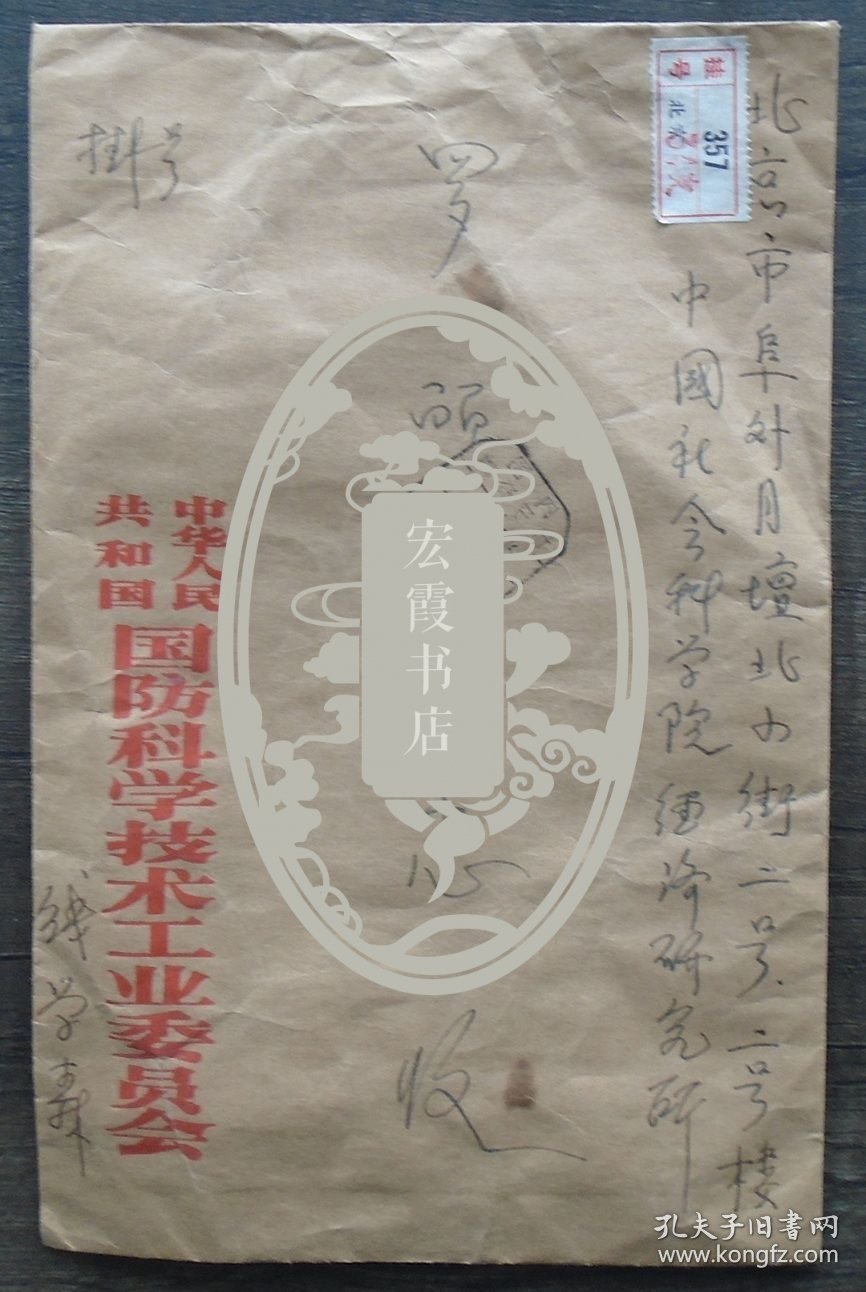 挂号
北京
357
北京市阜外月壇北小街二号二号楼
中國社会科学院經济研究所
罗
收
掛号
中华人民
共和国
国防科学技术工业委员会
钱学森
宏霞书店
孔夫子旧书网
www.kongfz.com